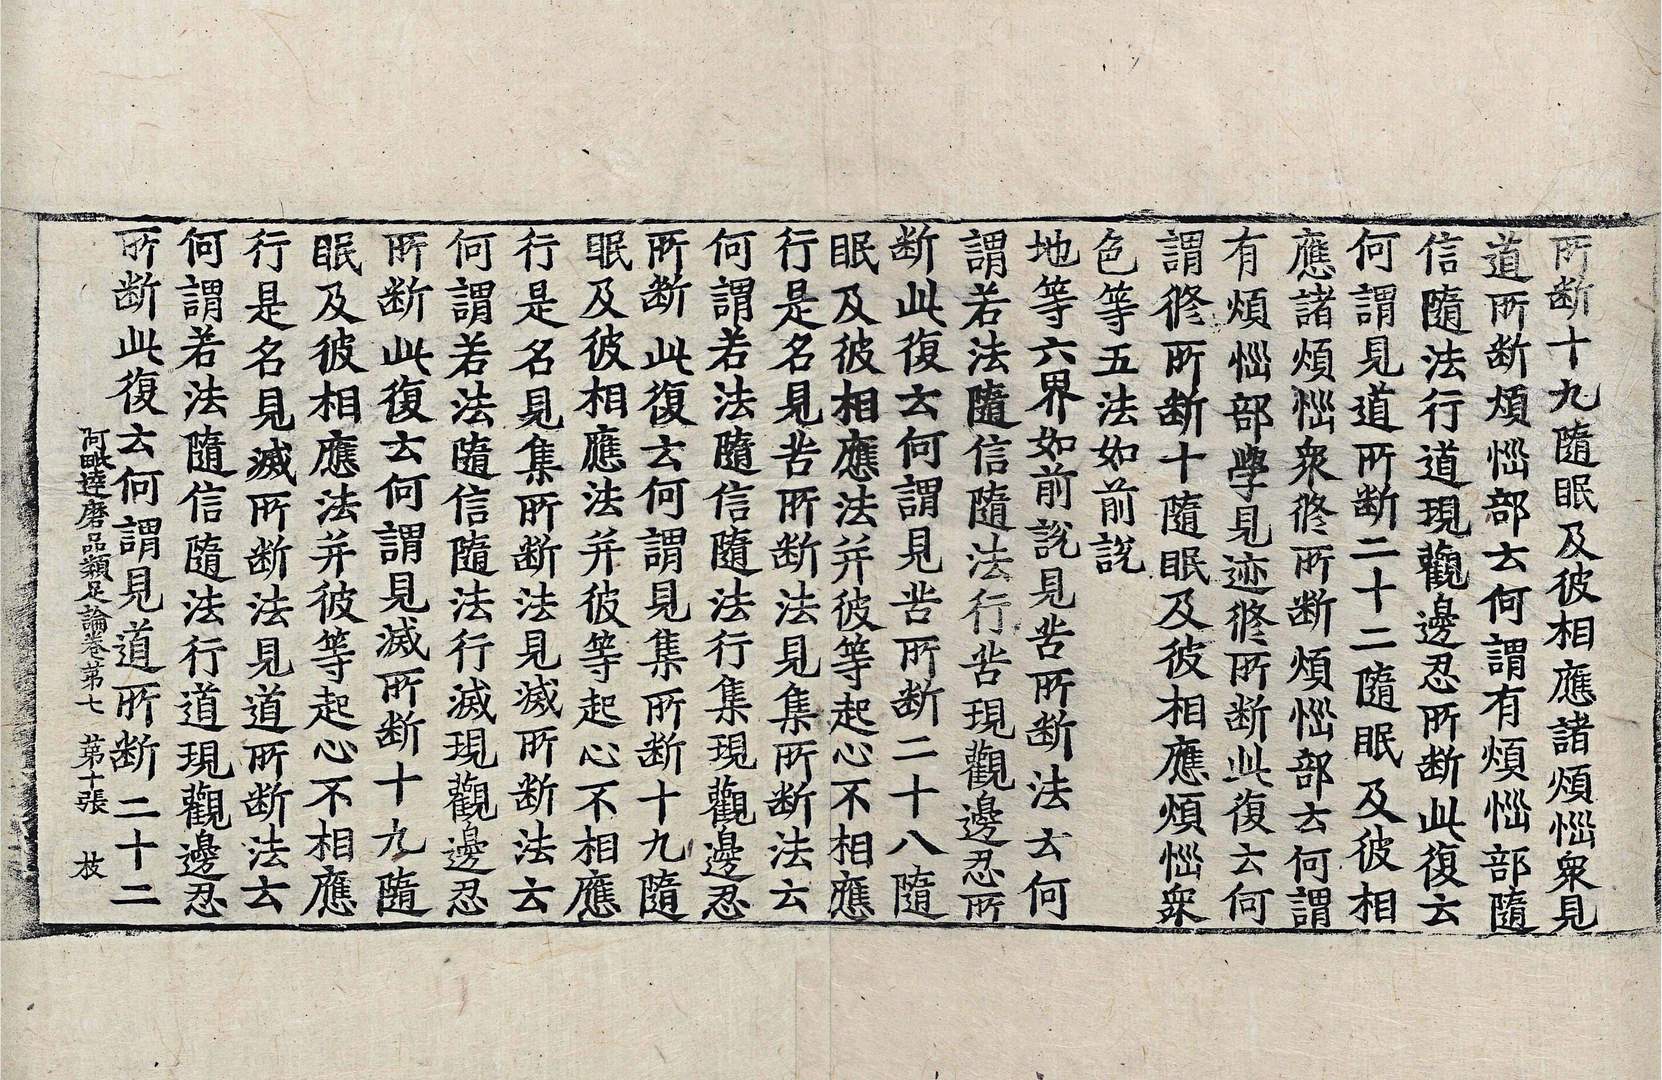 所断十九隨眠及彼相應諸煩惱衆見
道所断煩惱部去何謂有煩惱部隨
信隨法行道現觀邊忍所断此復去
何謂見道所断二十二隨眠及彼相
應諸煩惱衆修所断煩惱部去何謂
有煩惱部學見迹修所断此復去何
謂修所断十隨眠及彼相應煩惱衆
色等五法如前說
地等六界如前說見苦所断法去何
謂若法隨信隨法行苦現觀邊忍所
断此復去何謂見苦所断二十八隨
眠及彼相應法并彼等起心不相應
行是名見苦所断法見集所断法去
何謂若法隨信隨法行集現觀邊忍
所断此復去何謂見集所断十九隨
眠及彼相應法并彼等起心不相應
行是名見集所断法見滅所断法去
何謂若法隨信隨法行滅現觀邊忍
所断此復去何謂見滅所断十九隨
眠及彼相應法并彼等起心不相應
行是名見滅所断法見道所断法去
何謂若法隨信隨法行道現觀邊忍
所断此復去何謂見道所断二十二
阿毗達磨品類足論卷第七 第十張 枝